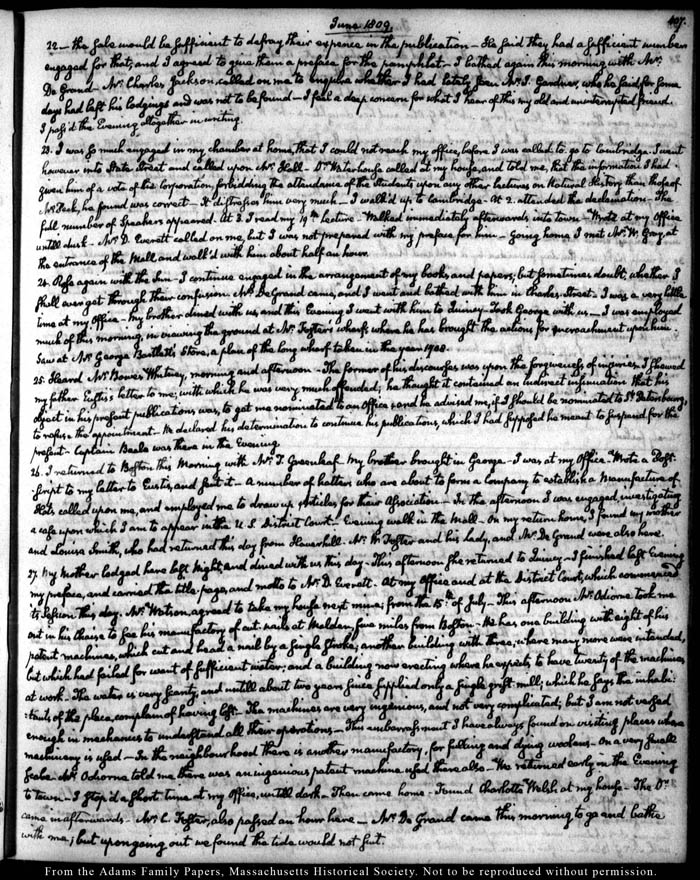 June 1809.
407.
22. — the sale would be sufficient to defray their expence in the publication — He said they had a sufficient number
engaged for that, and I agreed to give them a preface for the pamphlet — I bathed again this morning with Mr.
De Grand — Mr. Charles Jackson called on me to enquire whether I had lately seen Mr. J. Gardner, who he said for some
days had left his lodgings and was not to be found — I feel a deep concern for what I hear of this my old and friend.
I pass'd the Evening altogether in writing.
23. I was so much engaged in my chamber at home, that I could not reach my office, before I was called to go to Cambridge. I went
however into State Street and called upon Mr. Hall — Dr. Waterhouse called at my house, and told me, that the information I had
given him of a vote of the Corporation, forbidding the attendance of the Students upon any other Lectures on Natural History than those of
Mr. Peck, he found was correct — It distresses him very much — I walk'd up to Cambridge — At 2. attended the declamation — The
full number of Speakers appeared — At 3. I read my 19th lecture — Walked immediately afterwards into town — Wrote at my Office
untill dusk — Mr. D. Everett called on me, but I was not prepared with my preface for him — Going home I met Mr. W. Gray, at
the entrance of the Mall and walk'd with him about half an hour.
24. Rose again with the Sun — I continue engaged in the arrangement of my books, and papers; but sometimes doubt, whether I
shall ever get through their confusion. Mr. De Grand came, and I went and bathed with him in Charles-Street — I was a very little
time at my Office — My brother dined with us, and this Evening I went with him to Quincy — Took George with us — I was employed
much of this morning, in viewing the ground at Mr. Foster's wharf, where he has brought the actions for encroachment upon him.
Saw at Mr. George Bartlett's Store, a plan of the long wharf taken in the year 1708.
25. Heard Mr. Bower Whitney, morning and afternoon — The former of his discourses was upon the forgiveness of injuries. I shewed
my father Eustis's letter to me; with which he was very much offended; he thought it contained an indirect insinuation that his
object in his present publications was, to get me nominated to an Office; and he advised me, if I should be nominated to St. Petersburg,
to refuse the appointment. He declared his determination to continue his publications, which I had supposed he meant to suspend for the
present — Captain Beale was there in the Evening.
26. I returned to Boston this Morning with Mr. T. Greenleaf. My brother brought in George — I was at my Office — Wrote a Post-
script to my letter to Eustis, and sent it — A number of hatters who are about to form a Company to establish a Manufacture of
Hats called upon me, and employed me to draw up Articles for their Association — In the afternoon I was engaged investigating
a case upon which I am to appear in the U.S. District Court — Evening walk in the Mall — On my return home, I found my mother
and Louisa Smith, who had returned this day from Haverhill — Mr. W. Foster and his Lady, and Mr. De Grand were also here.
27. My Mother lodged here last Night, and dined with us this day — This afternoon she returned to Quincy — I finished last Evening
my preface, and carried the title page, and motto to Mr. D. Everett — At my Office and at the District Court, which commenced
its Session this day. Mr. Watson agreed to take my house next mine; from the 15th of July — This afternoon Mr. Odiorne took me
out in his Chaise to see his manufactory of cut nails at Malden, five miles from Boston — He has one building with eight of his
patent machines, which cut and head a nail by a single stroke; another building with three, where many more were intended,
but which had failed for want of sufficient water; and a building now erecting where he expects to have twenty of the machines
at work — The water is very scanty, and untill about two years since supplied only a single grist-mill; which he says the inhabi-
tants of the place, complain of having lost. The machines are very ingenious, and not very complicated; but I am not versed
enough in mechanics to understand all their operations — This embarrassment I have always found on visiting places where
machinery is used — In the neighbourhood there is another manufactory, for fulling and dying woolens — On a very small
scale — Mr. Odiorne told me there was an ingenious patent machine used there also — We returned early in the Evening
to town — I stop'd a short time at my Office, untill dark — Then came home — Found Charlotte Welsh at my house — The Dr.
came in afterwards — Mr. C. Foster, also passed an hour here — Mr. De Grand came this morning to go and bathe
with me; but upon going out we found the tide would not suit.
From the Adams Family Papers, Massachusetts Historical Society. Not to be reproduced without permission.